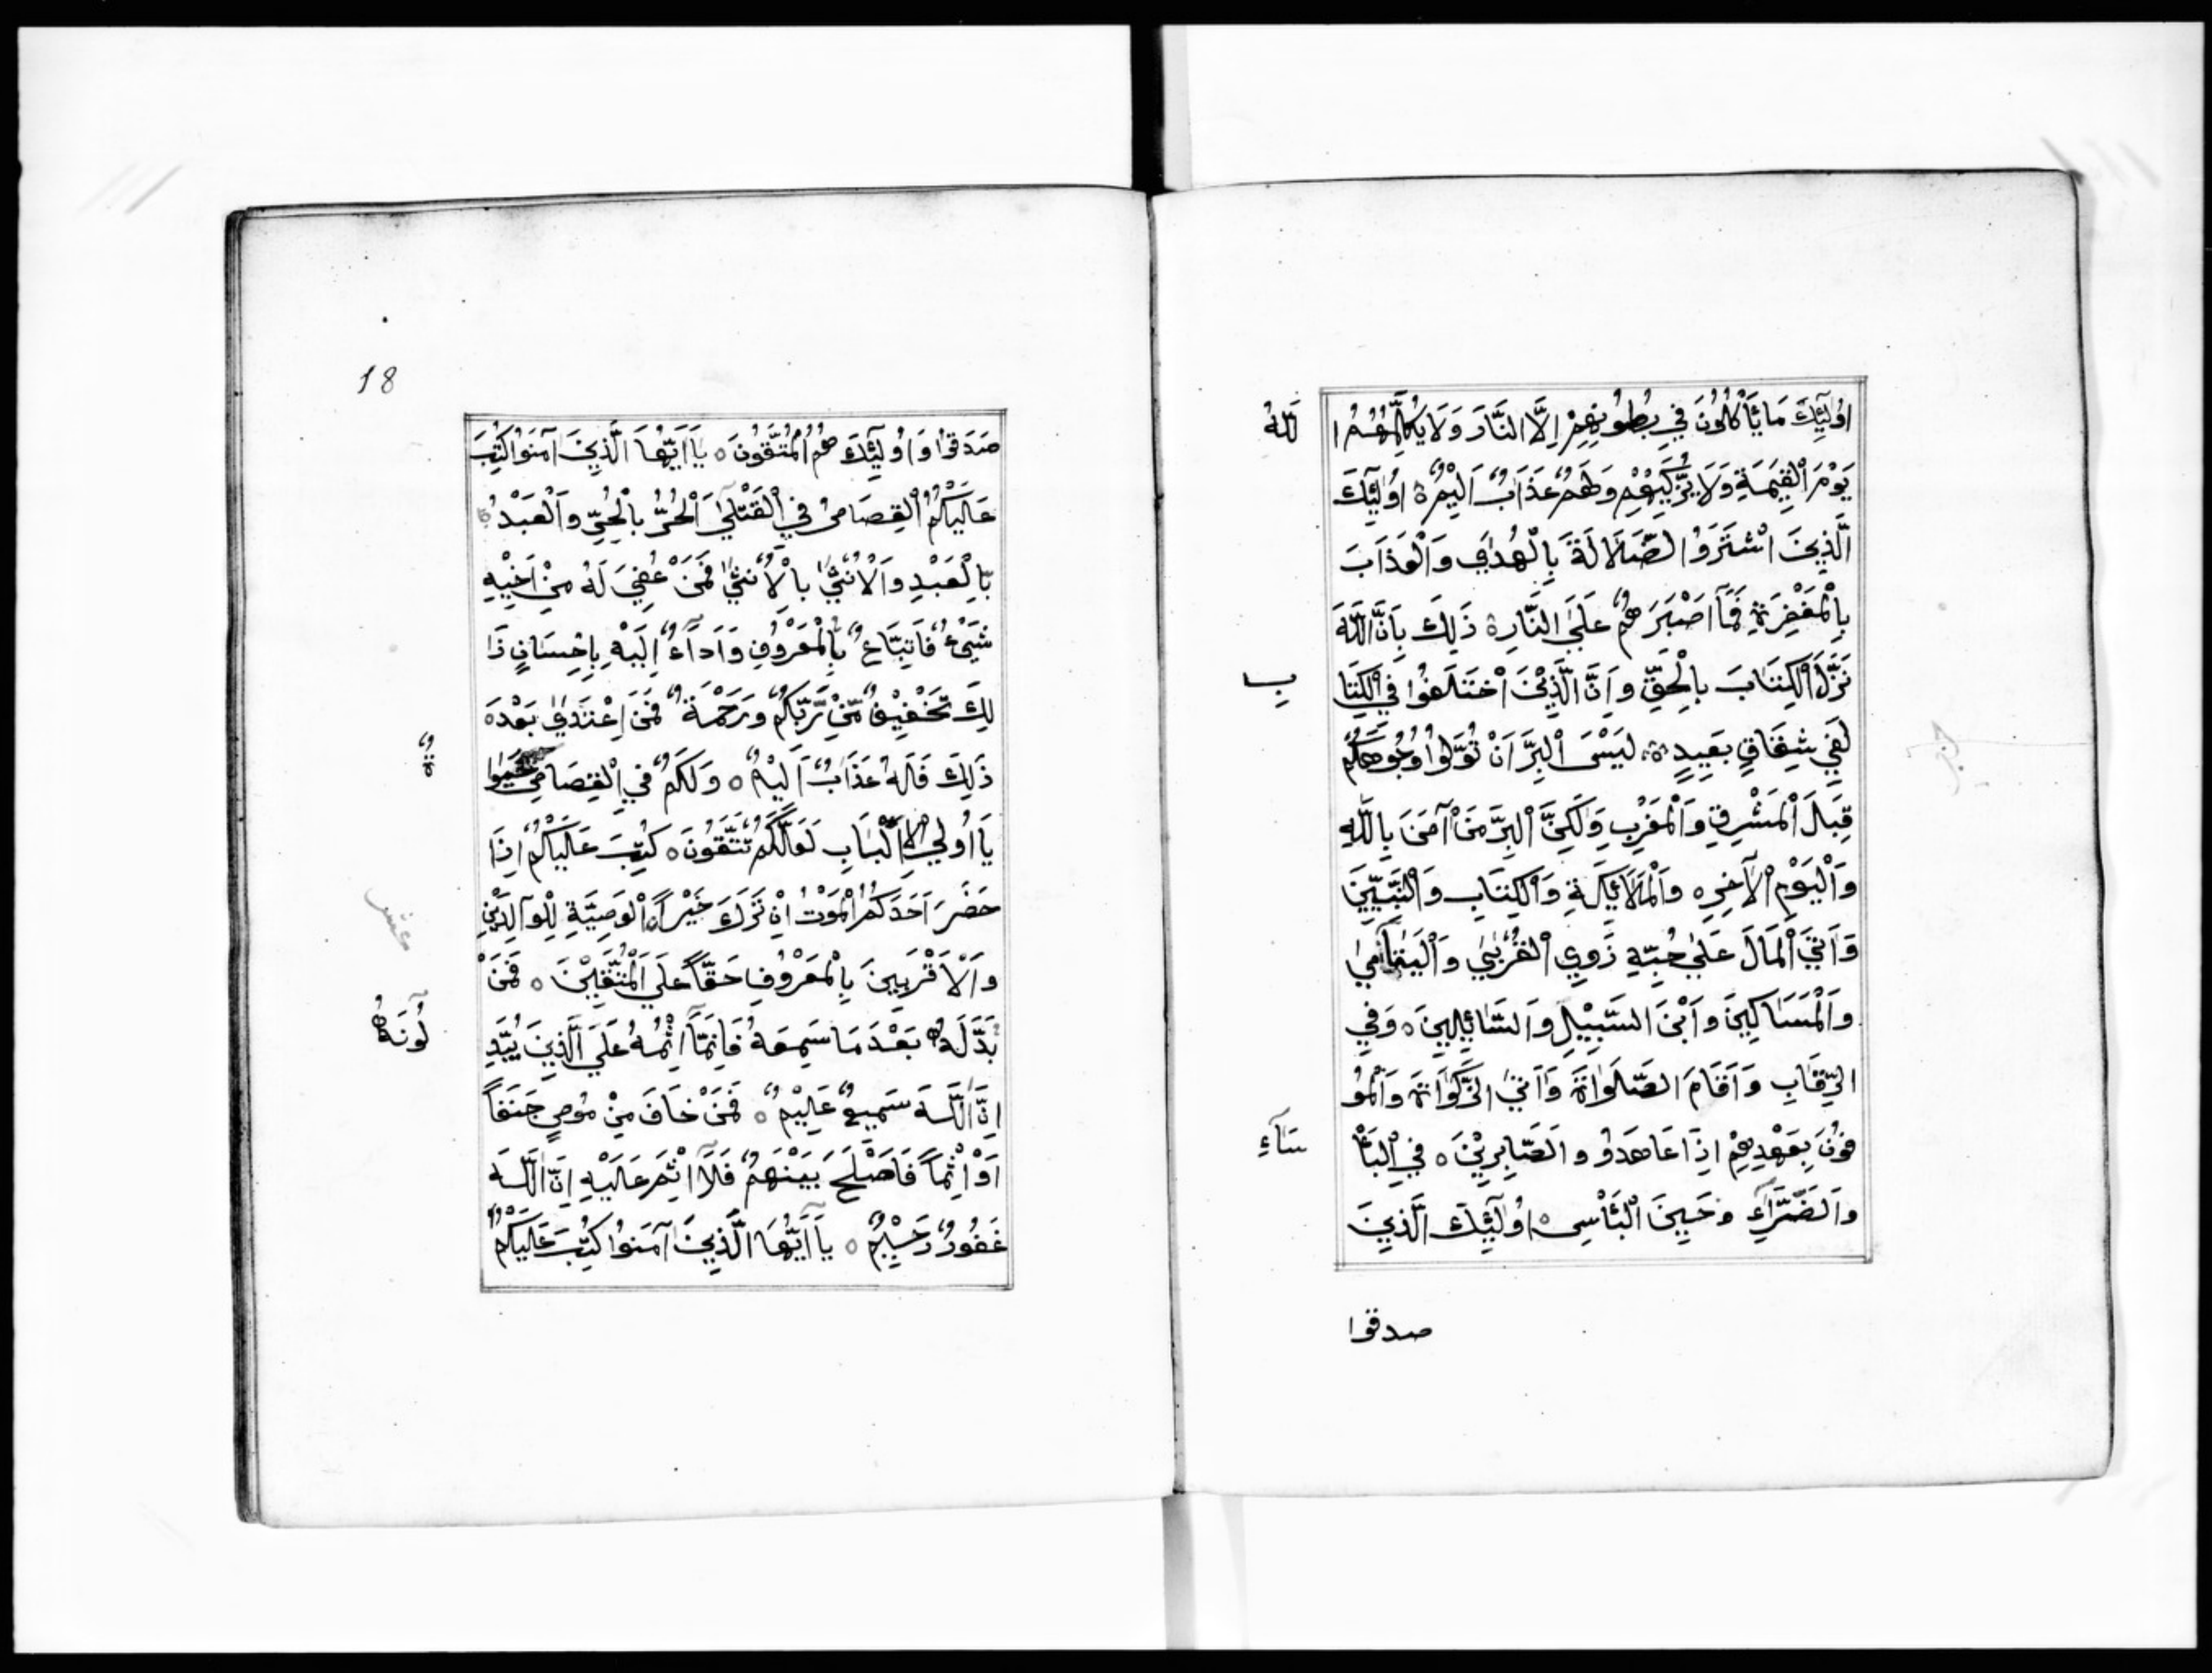 اُولٰٓئِكَ مَا يَأْكُلُونَ فِي بُطُوْنِهِمْ اِلَّا النَّارَ وَلَا يُكَلِّمُهُمُ ا
للهُ
يَوْمَ الْقِيٰمَةِ وَلَا يُزَكِّيْهِمْ وَلَهُمْ عَذَابٌ اَلِيْمٌ ۃ اُولٰٓئِكَ
الَّذِينَ اشْتَرَوُا الضَّلَالَةَ بِالْهُدٰي وَالْعَذَابَ
بِالْمَغْفِرَةِ فَمَآ اَصْبَرَهُمْ عَلَي النَّارِ ۃ ذَلِكَ بِاَنَّ اللَّهَ
نَزَّلَ الْكِتَابَ بِالْحَقِّ وَاِنَّ الَّذِيْنَ اخْتَلَفُوا فِي الْكِتَا
بِ
لَفِي شِقَاقٍ بَعِيدٍ ۃ لَيْسَ الْبِرَّ اَنْ تُوَلُّوا وُجُوهَكُمْ
قِبَلَ الْمَشْرِقِ وَالْمَغْرِبِ وَلٰكِنَّ الْبِرَّ مَنْ آمَنَ بِاللّٰهِ
وَالْيَوْمِ الْآخِرِ ه وَالْمَلَائِكَةِ وَالْكِتَابِ وَالنَّبِيِّينَ
وَاٰتَي الْمَالَ عَلٰي حُبِّهِ ذَوِي الْقُرْبٰي وَالْيَتَامٰي
وَالْمَسَاكِينَ وَابْنَ السَّبِيْلِ وَالسَّائِلِينَ ه وَفِي
الرِّقَابِ وَاَقَامَ الصَّلَوٰاةَ وَاٰتَي الزَّكَوٰاةَ وَالْمُو
فُونَ بِعَهْدِهِمْ اِذَا عَاهَدُو وَالصَّابِرِيْنَ ه فِي الْبَأْ
سَآءِ
وَالضَّرَّآءِ وَحِينَ الْبَأْسِ ه اُولٰٓئِكَ الَّذِينَ
صدقوا
18
صَدَقُوا وَاُولٰٓئِكَ هُمُ الْمُتَّقُونَ ه يَآ اَيُّهَا الَّذِينَ آمَنُوا كُتِبَ
عَلَيْكُمُ الْقِصَاصُ فِي الْقَتْلٰي اَلْحُرُّ بِالْحُرِّ وَالْعَبْدُ
بِالْعَبْدِ وَالْاُنْثٰي بِالْاُنْثٰي فَمَنْ عُفِيَ لَهُ مِنْ اَخِيْهِ
شَيْءٌ فَاتِّبَاعٌ بِالْمَعْرُوْفِ وَاَدَآءٌ اِلَيْهِ بِاِحْسَانٍ ذَا
لِكَ تَخْفِيْفٌ مِّنْ رَّبِّكُمْ وَرَحْمَةٌ فَمَنِ اعْتَدٰي بَعْدَه
ذَلِكَ فَلَهُ عَذَابٌ اَلِيْمٌ ه وَلَكُمْ فِي الْقِصَاصِ حَيٰوا
ةٌ
يَا اُولِي الْاَلْبَابِ لَعَلَّكُمْ تَتَّقُونَ ه كُتِبَ عَلَيْكُمْ اِذَا
حَضَرَ اَحَدَكُمُ الْمَوْتُ اِنْ تَرَكَ خَيْراً ه الْوَصِيَّةِ لِلْوَالِدَيْنِ
عشر
وَالْاَقْرَبِينَ بِالْمَعْرُوْفِ حَقّاً عَلَي الْمُتَّقِيْنَ ه فَمَنْ
بَدَّلَهُ بَعْدَ مَا سَمِعَهُ فَاِنَّمَآ اِثْمُهُ عَلَي الَّذِينَ يُبَدِّ
لُونَهُ
اِنَّ اللَّهَ سَمِيعٌ عَلِيْمٌ ه فَمَنْ خَافَ مِنْ مُوصٍ جَنَفاً
اَوْ اِثْماً فَاَصْلَحَ بَيْنَهُمْ فَلَآ اِثْمَ عَلَيْهِ اِنَّ اللَّهَ
غَفُورٌ رَحِيْمٌ ه يَآ اَيُّهَا الَّذِينَ آمَنُوا كُتِبَ عَلَيْكُمُ